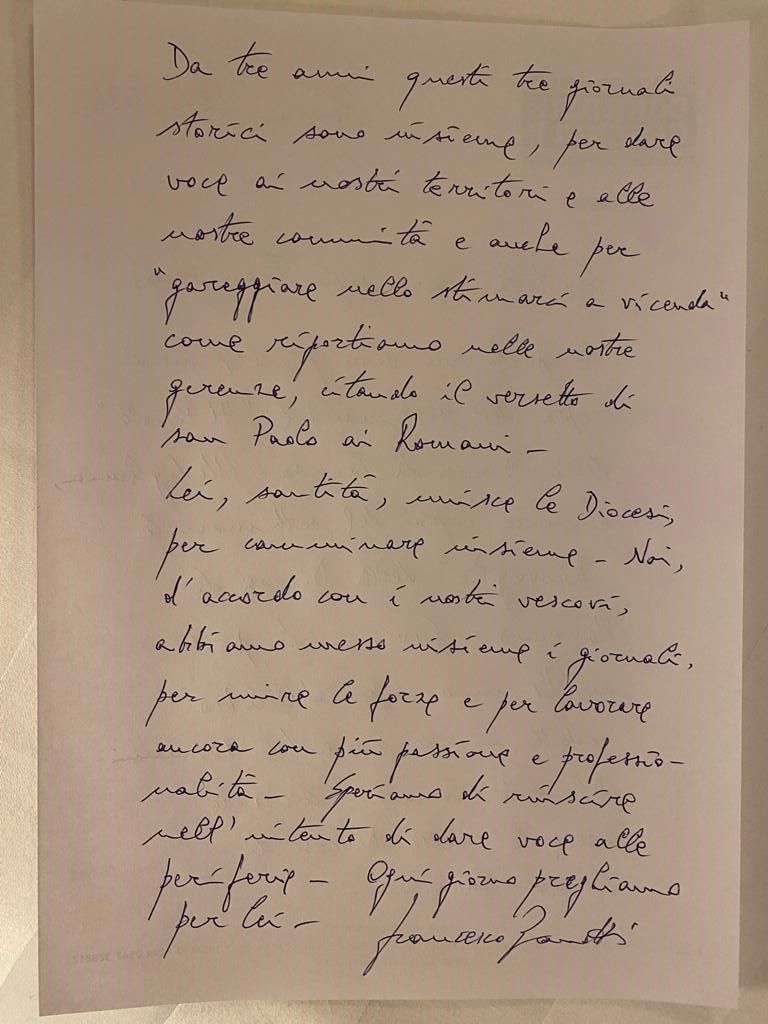 Da tre anni questi tre giornali
storici sono insieme, per dare
voce ai nostri territori e alle
nostre comunità e anche per
"gareggiare nello stimarci a vicenda"
come riportiamo nelle nostre
gerenze, citando il versetto di
san Paolo ai Romani -
Lei, santità, unisce le Diocesi,
per camminare insieme - Noi,
d'accordo con i nostri vescovi,
abbiamo messo insieme i giornali,
per unire le forze e per lavorare
ancora con più passione e professio-
nalità - Speriamo di riuscire
nell'intento di dare voce alle
periferie - Ogni giorno preghiamo
per lei - Francesco Zanotti